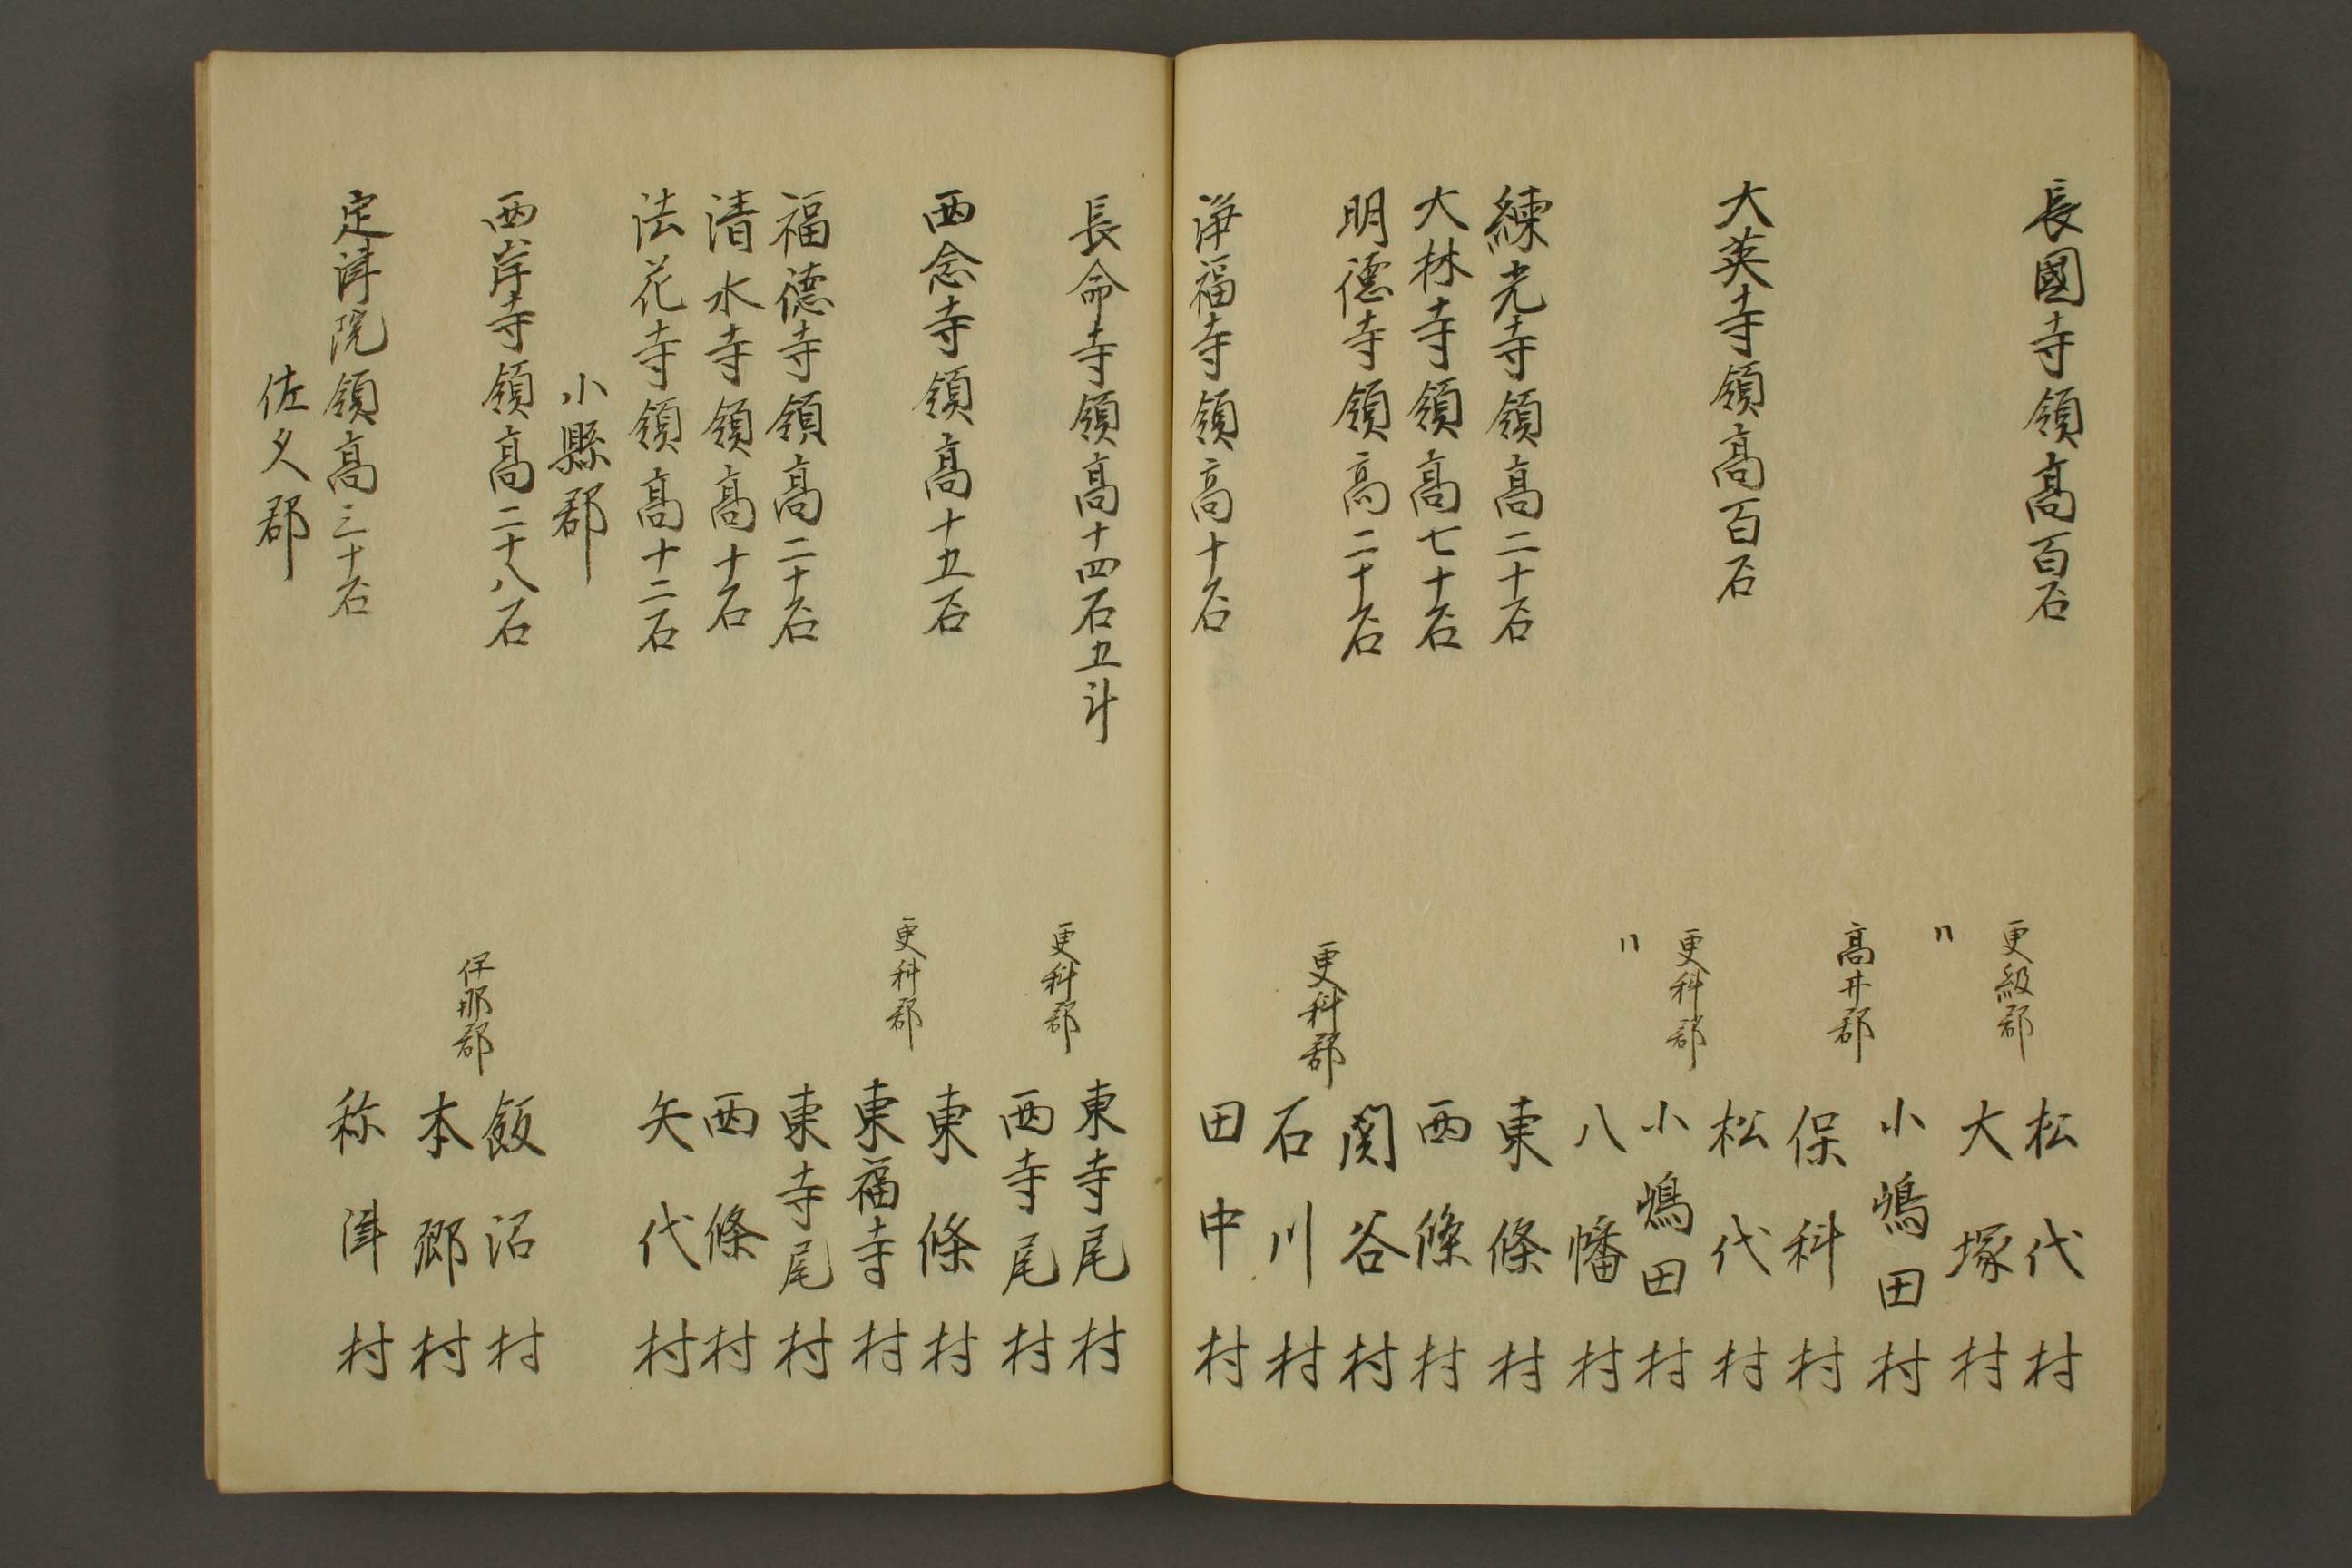 長國寺領高百石 松代村
更級郡 大塚村
〃 小嶋田村
高井郡 保科村
大英寺領高百石 松代村
更科郡 小嶋田村
〃 八幡村
練光寺領高二十石 東條村
大林寺領高七十石 西條村
明徳寺領高二十石 関谷村
更科郡 石川村
浄福寺領高十石 田中村
長命寺領高十四石五斗 東寺尾村
更科郡 西寺尾村
西念寺領高十五石 東條村
更科郡 東福寺村
福徳寺領高二十石 東寺尾村
清水寺領高十石 西條村
法花寺領高十二石 矢代村
小縣郡
西岸寺領高二十八石 飯沼村
伊那郡 本郷村
定津院領高三十石 祢津村
佐久郡